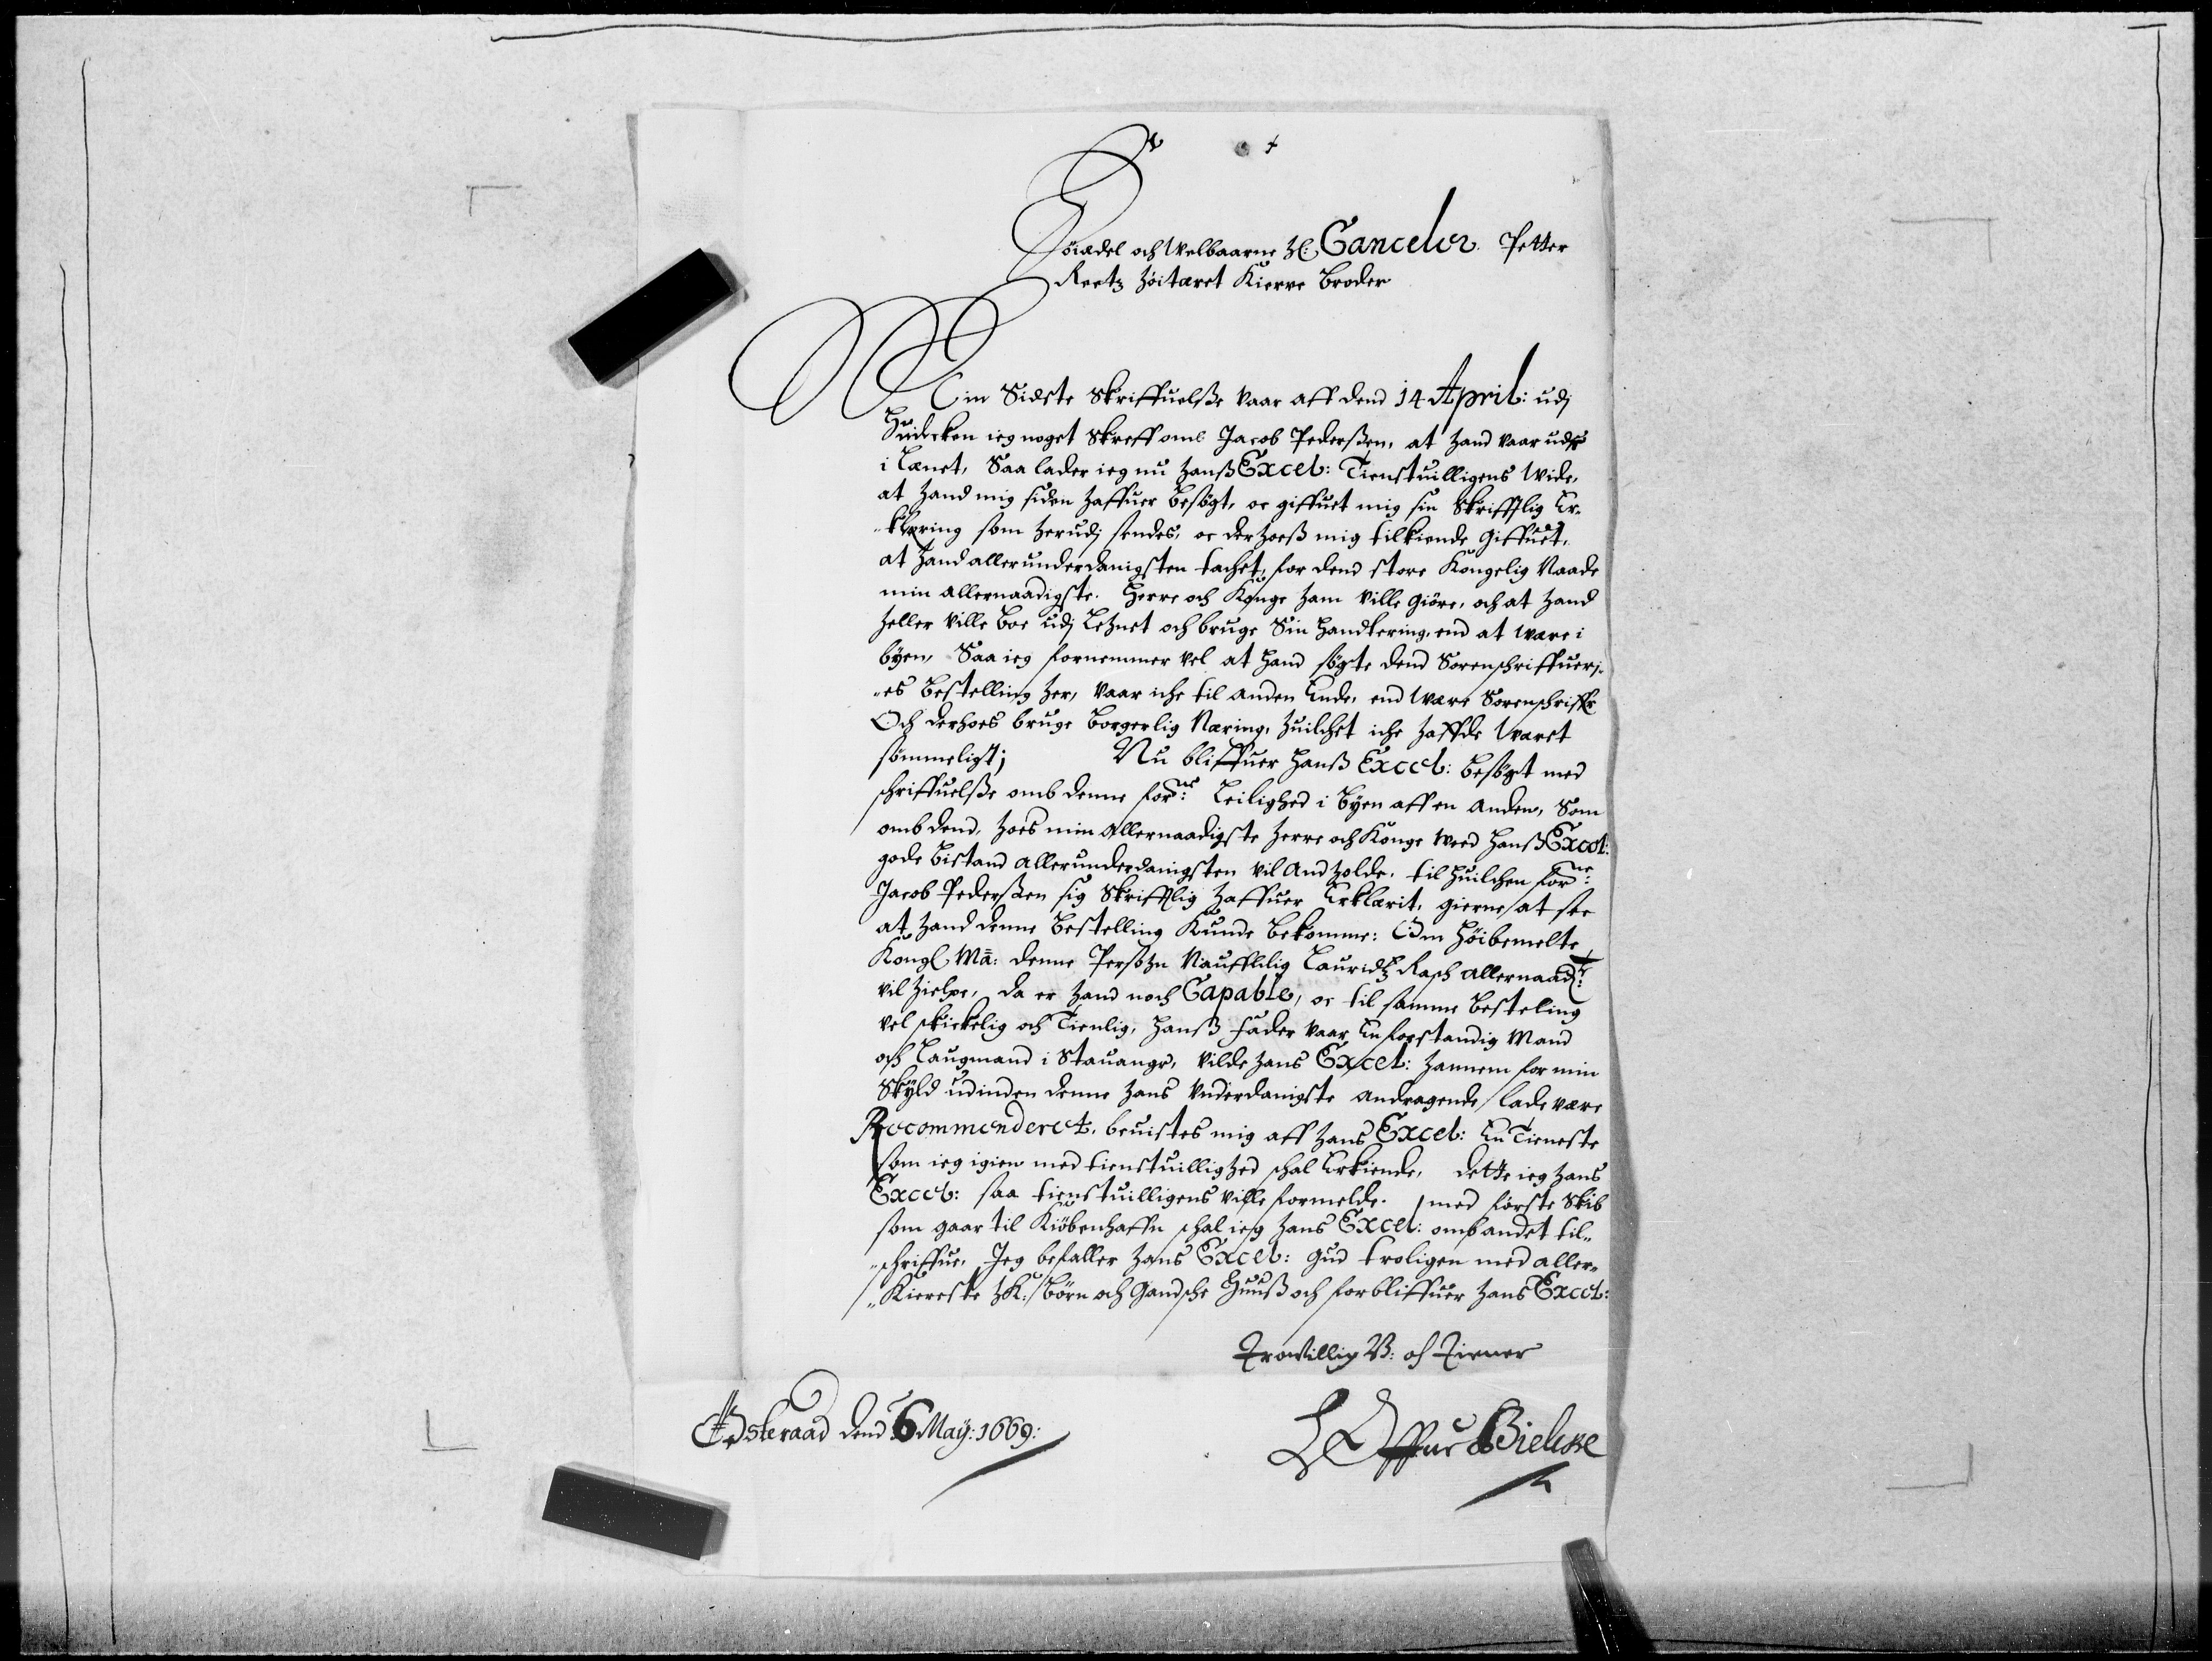 Höiædel och Welbaarne H: Canceler Petter
Reetz Høitæret Kierre Broder
Min Sidste Skriffuelsse vaar aff dend 14 April: udj
Huilcken ieg noget Skreff omb Jacob Pederssen, at Hand vaar udj
i Lænet, Saa lader ieg nu Hanss Excel: Tienstuilligens Wide,
at Hand mig siden Haffuer besögt, oc giffuet mig sin Skrifftlig Er„
„klering som Herudj sendes, oc der Hoess mig tilkiende Giffuet,
at Hand allerunderdanigsten tachet, for dend store Kongelig Naade
min allernaadigste Herre och Konge Ham ville Giöre, och at Hand
Heller ville Boe udj Lehnet och bruge Sin Handtering, end at være i
byen, Saa ieg fornemmer vel at Hand sögte dend Sorenschriffueri„
„es Bestelling Her, vaar iche til anden Ende, end være Sorenschriffr
Och derhoes bruge Borgerlig Næring, Huilchet iche Haffde Wæret
sömmeligt; Nu bliffuer Hanss Excel: besögt med
schriffuelsse omb denne forne: Leilighed i Byen aff en anden, Som
omb dend, Hoes min Allernaadigste Herre och Konge Wed Hanss Excel:
gode Bistand allerunderdanigsten vil AndHolde, til Huilchen forne:
Jacob Pederssen sig Skrifftlig Haffuer Erklærit, gierne at see
at Hand denne Bestelling Kunde Bekomme: Om Höibemelte
Kongl Ma: denne Persohn Naufflilig Lauridtz Rasch allernaadt:
vil Hielpe, da er Hand noch Capable, oc til samme Besteling
vel skickelig och Tienlig, Hanss Fader vaar En forstandig Mand
och Laugmand i Stauanger, vilde Hans Excel: Hannem for min
Skyld udinden denne Hans Underdanigste andragende lade være
Recommenderet, beuistes mig aff Hans Excel: En Tieneste
som ieg igien med tienstuillighed schal Erkiende, dette ieg Hans
Excel: saa tienstuilligens ville formelde. med förste Skib
som gaar til Kiöbenhaffn schal ieg Hans Excel: omb andet til„
„schriffue, Jeg befaller Hans Excel: Gud troligen med aller„
„Kiereste HK: Börn och Gandsche Huuss och forbliffuer Hans Excel:
Trowillig B: oc Tiener
Østeraad dend 6 Maÿ: 1669:
Offue Bielcke